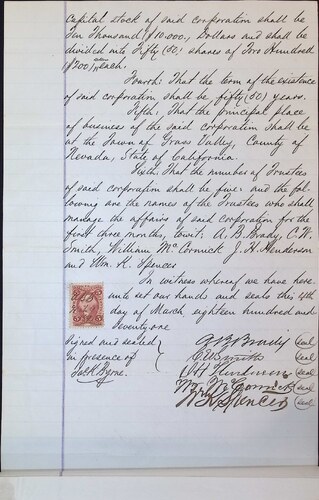 capital stock of said corporation shall be
Ten Thousand, ($10.000,) Dollars and shall be
divided into Fifty (50) shares of Two Hundred
($200) dollars each.
Fourth: That the term of the existence
of said corporation shall be fifty (50) years.
Fifth: That the principal place
of business of the said corporation shall be
at the Town of Grass Valley, County of
Nevada, State of California.
Sixth That the number of Trustees
of said corporation shall be five: and the fol-
lowing are the names of the Trustees who shall
manage the affairs of said corporation for the
first three months, towit: A. B. Brady, C. W.
Smith, William McCormick J. H. Henderson
and Wm. K. Spencer
In witness whereof we have here-
unto set our hands and seals this 4th
day of March, eighteen hundred and
seventy-one
Signed and sealed
in presence of
Jack Byrne.
A B Brady (seal)
C W Smith (seal)
J H Henderson (seal)
Wm McCormick (seal)
Wm K Spencer (seal)